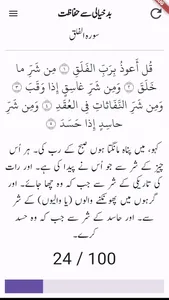 بدخیالی سے حفاظت
سورہ الفلق
قُلْ أَعُوذُ بِرَبِّ الْفَلَقِ ۝ مِن شَرِّ مَا
خَلَقَ ۝ وَمِن شَرِّ غَاسِقٍ إِذَا وَقَبَ ۝
وَمِن شَرِّ النَّفَّاثَاتِ فِي الْعُقَدِ ۝ وَمِن شَرِّ
حَاسِدٍ إِذَا حَسَدَ ۝
کہو، میں پناہ مانگتا ہوں صبح کے رب کی۔ ہر اُس
چیز کے شر سے جو اُس نے پیدا کی ہے۔ اور رات
کی تاریکی کے شر سے جب کہ وہ چھا جائے۔ اور
گرہوں میں پھونکنے والوں (یا والیوں) کے شر
سے۔ اور حاسد کے شر سے جب کہ وہ حسد
کرے۔
24 / 100